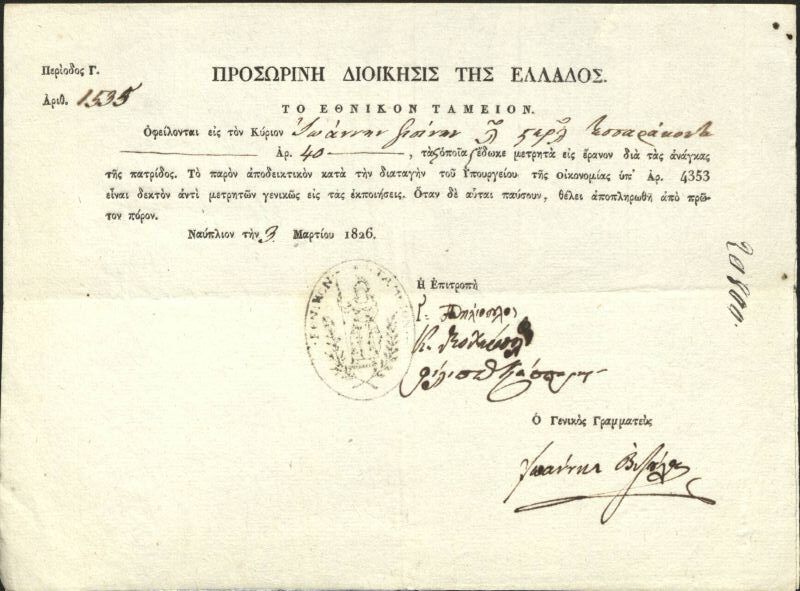 Περίοδος Γ.
ΠΡΟΣΩΡΙΝΗ ΔΙΟΙΚΗΣΙΣ ΤΗΣ ΕΛΛΑΔΟΣ.
Ἀριθ. 1535
ΤΟ ΕΘΝΙΚΟΝ ΤΑΜΕΙΟΝ.
Ὀφείλονται εἰς τὸν Κύριον Ἰωάννην
Ἀρ. 40 , τὰ ὁποῖα ἔδωκε μετρητὰ εἰς ἔρανον διὰ τὰς ἀνάγκας
τῆς πατρίδος. Τὸ παρὸν ἀποδεικτικὸν κατὰ τὴν διαταγὴν τοῦ Ὑπουργείου τῆς Οἰκονομίας ὑπ' Ἀρ. 4353
εἶναι δεκτὸν ἀντὶ μετρητῶν γενικῶς εἰς τὰς ἐκποιήσεις. Ὅταν δὲ αὗται παύσουν, θέλει ἀποπληρωθῆ ἀπὸ πρῶ-
τον πόρον.
Ναύπλιον τὴν 3 Μαρτίου 1826.
Ἡ Ἐπιτροπὴ
Κ.
Ὁ Γενικὸς Γραμματεὺς
Ἰωάννης